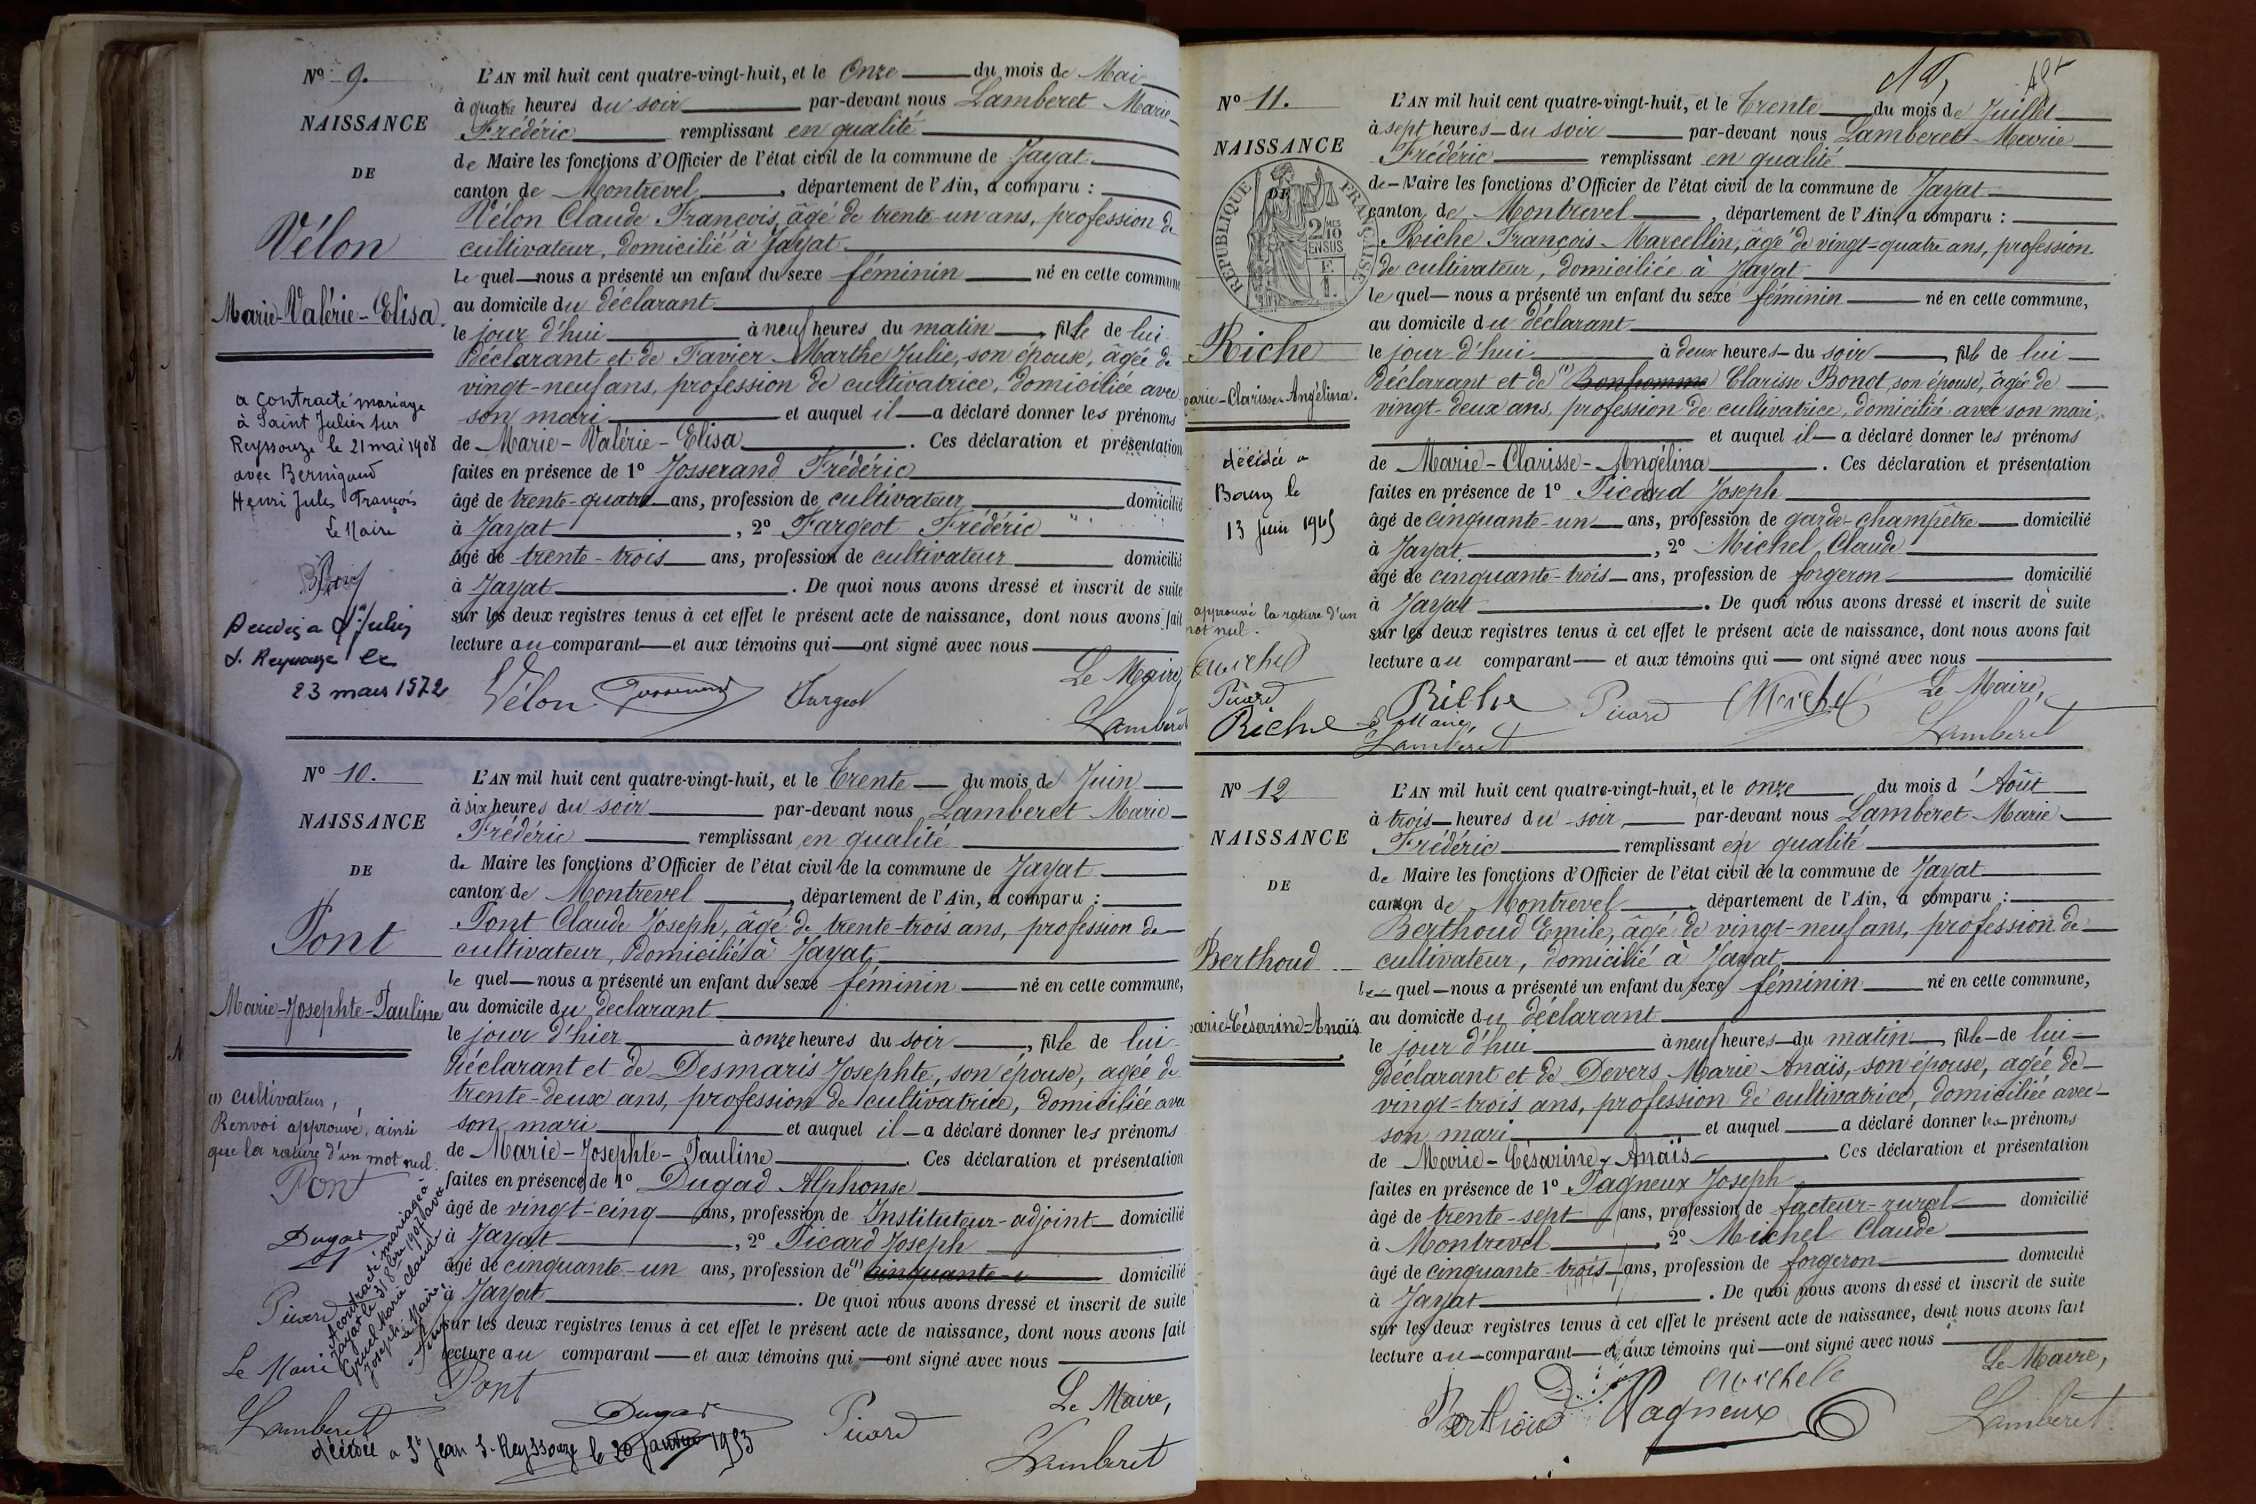 N° 9.
NAISSANCE
DE
Vélon
Marie-Valérie-Elisa.
a contracté mariage
à Saint Julien sur
Reyssouze le 21 mai 1908
avec Bernigaud
Henri Jules François
Le Maire
23 mars 1972
L'AN mil huit cent quatre-vingt-huit, et le Onze du mois de Mai
à quatre heures du soir par-devant nous Lamberet Marie
Frédéric remplissant en qualité
de Maire les fonctions d'Officier de l'état civil de la commune de Jayat
canton de Montrevel, département de l'Ain, a comparu :
Vélon Claude François, âgé de trente-un ans, profession de
cultivateur, domicilié à Jayat
Le quel nous a présenté un enfant du sexe féminin né en cette commune
au domicile du déclarant
le jour d'hui à neuf heures du matin, fille de lui
déclarant et de Favier Marthe Julie, son épouse, âgée de
vingt-neuf ans, profession de cultivatrice, domiciliée avec
son mari et auquel il a déclaré donner les prénoms
de Marie-Valérie-Elisa. Ces déclaration et présentation
faites en présence de 1° Josserand Frédéric
âgé de trente-quatre ans, profession de cultivateur domicilié
à Jayat, 2° Fargeot Frédéric
âgé de trente-trois ans, profession de cultivateur domicilié
à Jayat. De quoi nous avons dressé et inscrit de suite
sur les deux registres tenus à cet effet le présent acte de naissance, dont nous avons fait
lecture au comparant et aux témoins qui ont signé avec nous
Le Maire,
Vélon Josserand Fargeot Lamberet
N° 10.
NAISSANCE
DE
Pont
Marie-Josephte-Pauline
(1) cultivateur,
Renvoi approuvé, ainsi
que la rature d'un mot nul.
Pont
Dugad
Picard
Le Maire
Lamberet
A contracté mariage à
Jayat le 31 8bre 1907 avec
Gruel Marie Claude
Joseph
Le Maire
L'AN mil huit cent quatre-vingt-huit, et le Trente du mois de Juin
à six heures du soir par-devant nous Lamberet Marie
Frédéric remplissant en qualité
de Maire les fonctions d'Officier de l'état civil de la commune de Jayat
canton de Montrevel, département de l'Ain, a comparu :
Pont Claude Joseph, âgé de trente-trois ans, profession de
cultivateur, domicilié à Jayat
le quel nous a présenté un enfant du sexe féminin né en cette commune,
au domicile du déclarant
le jour d'hier à onze heures du soir, fille de lui
déclarant et de Desmaris Josephte, son épouse, agée de
trente-deux ans, profession de cultivatrice, domiciliée avec
son mari et auquel il a déclaré donner les prénoms
de Marie-Josephte-Pauline. Ces déclaration et présentation
faites en présence de 1° Dugad Alphonse
âgé de vingt-cinq ans, profession de Instituteur-adjoint domicilié
à Jayat, 2° Picard Joseph
âgé de cinquante-un ans, profession de (1) cinquante-u domicilié
à Jayat. De quoi nous avons dressé et inscrit de suite
sur les deux registres tenus à cet effet le présent acte de naissance, dont nous avons fait
lecture au comparant et aux témoins qui ont signé avec nous
Pont Dugad Picard Le Maire,
Lamberet
décédée a St Jean S. Reyssouze le 20 Janvier 1953
N° 11.
NAISSANCE
DE
RÉPUBLIQUE FRANÇAISE
2/10 EN SUS
Riche
Marie-Clarisse-Angélina.
décédée a
Bourg le
13 juin 1965
approuvé la rature d'un
mot nul.
Michel
Picard
Riche
Le Maire,
Lamberet
L'AN mil huit cent quatre-vingt-huit, et le Trente du mois de Juillet
à sept heures du soir par-devant nous Lamberet Marie
Frédéric remplissant en qualité
de Maire les fonctions d'Officier de l'état civil de la commune de Jayat
canton de Montrevel, département de l'Ain, a comparu :
Riche François Marcellin, âgé de vingt-quatre ans, profession
de cultivateur, domiciliée à Jayat
le quel nous a présenté un enfant du sexe féminin né en cette commune,
au domicile du déclarant
le jour d'hui à deux heures du soir, fille de lui
déclarant et de (1) Bonhomme Clarisse Bonot, son épouse, âgée de
vingt-deux ans, profession de cultivatrice, domiciliée avec son mari
et auquel il a déclaré donner les prénoms
de Marie-Clarisse-Angélina. Ces déclaration et présentation
faites en présence de 1° Picard Joseph
âgé de cinquante-un ans, profession de garde-champêtre domicilié
à Jayat, 2° Michel Claude
âgé de cinquante-trois ans, profession de forgeron domicilié
à Jayat. De quoi nous avons dressé et inscrit de suite
sur les deux registres tenus à cet effet le présent acte de naissance, dont nous avons fait
lecture au comparant et aux témoins qui ont signé avec nous
Riche Picard Michel Le Maire,
Lamberet
N° 12
NAISSANCE
DE
Berthoud
Marie-Césarine-Anaïs
L'AN mil huit cent quatre-vingt-huit, et le onze du mois d'Août
à trois heures du soir par-devant nous Lamberet Marie
Frédéric remplissant en qualité
de Maire les fonctions d'Officier de l'état civil de la commune de Jayat
canton de Montrevel, département de l'Ain, a comparu :
Berthoud Emile, âgé de vingt-neuf ans, profession de
cultivateur, domicilié à Jayat
le quel nous a présenté un enfant du sexe féminin né en cette commune,
au domicile du déclarant
le jour d'hui à neuf heures du matin, fille de lui
déclarant et de Devers Marie Anaïs, son épouse, agée de
vingt-trois ans, profession de cultivatrice, domiciliée avec
son mari et auquel a déclaré donner les prénoms
de Marie-Césarine-Anaïs Ces déclaration et présentation
faites en présence de 1° Pagneux Joseph
âgé de trente-sept ans, profession de facteur-rural domicilié
à Montrevel, 2° Michel Claude
âgé de cinquante-trois ans, profession de forgeron domicilié
à Jayat. De quoi nous avons dressé et inscrit de suite
sur les deux registres tenus à cet effet le présent acte de naissance, dont nous avons fait
lecture au comparant et aux témoins qui ont signé avec nous
Le Maire,
Berthoud Pagneux Michel Lamberet